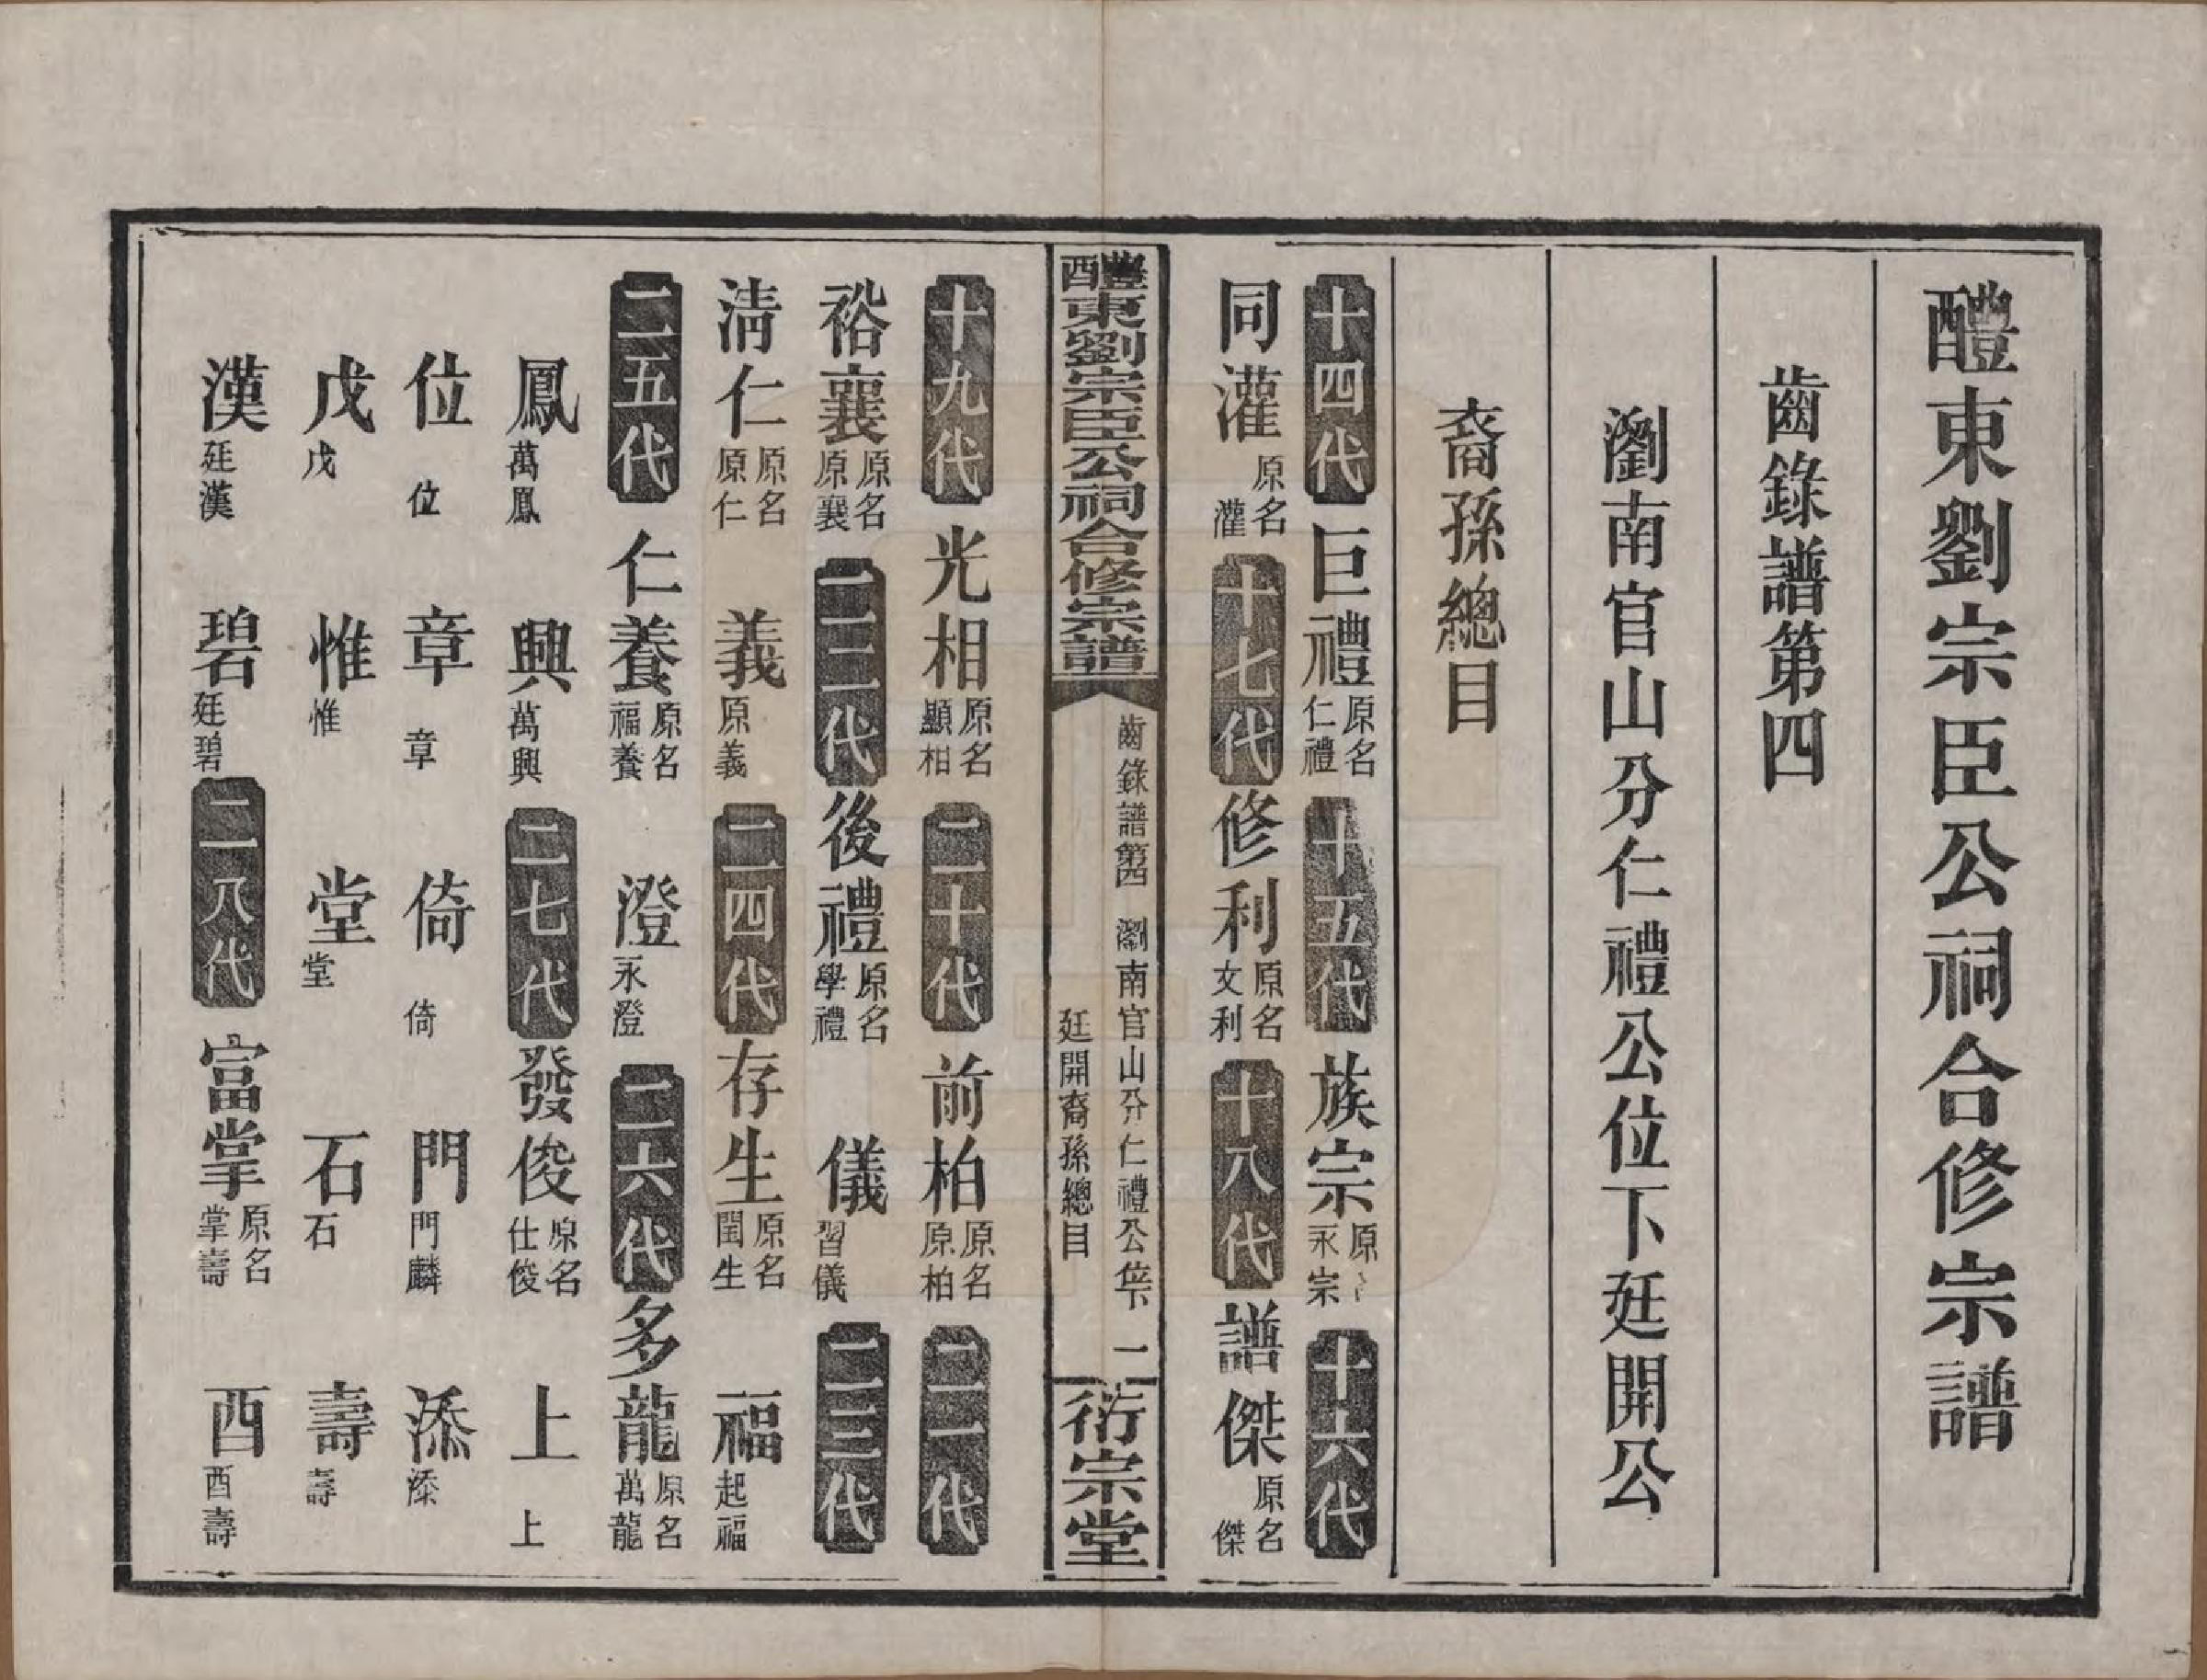 醴東劉宗臣公祠合修宗譜
齒錄譜第四
瀏南官山分仁禮公位下廷開公
裔孫總目
十四代 巨禮 原名仁禮 十五代 族宗 原 永宗 十六代
同灌 原名灌 十七代 修利 原名文利 十八代 譜傑 原名傑
醴東劉宗臣公祠合修宗譜 齒錄譜第四 瀏南官山分仁禮公位下 廷開裔孫總目 一 衍宗堂
十九代 光相 原名顯相 二十代 前柏 原名原柏 二一代
裕襄 原名原襄 二二代 後禮 原名學禮 儀 習儀 二三代
清仁 原名原仁 義 原義 二四代 存生 原名閏生 福 起福
二五代 仁養 原名福養 澄 永澄 二六代 多龍 原名萬龍
鳳 萬鳳 興 萬興 二七代 發俊 原名仕俊 上 上
位 位 章 章 倚 倚 門 門麟 添 添
戊 戊 惟 惟 堂 堂 石 石 壽 壽
漢 廷漢 碧 廷碧 二八代 富掌 原名掌壽 酉 酉壽